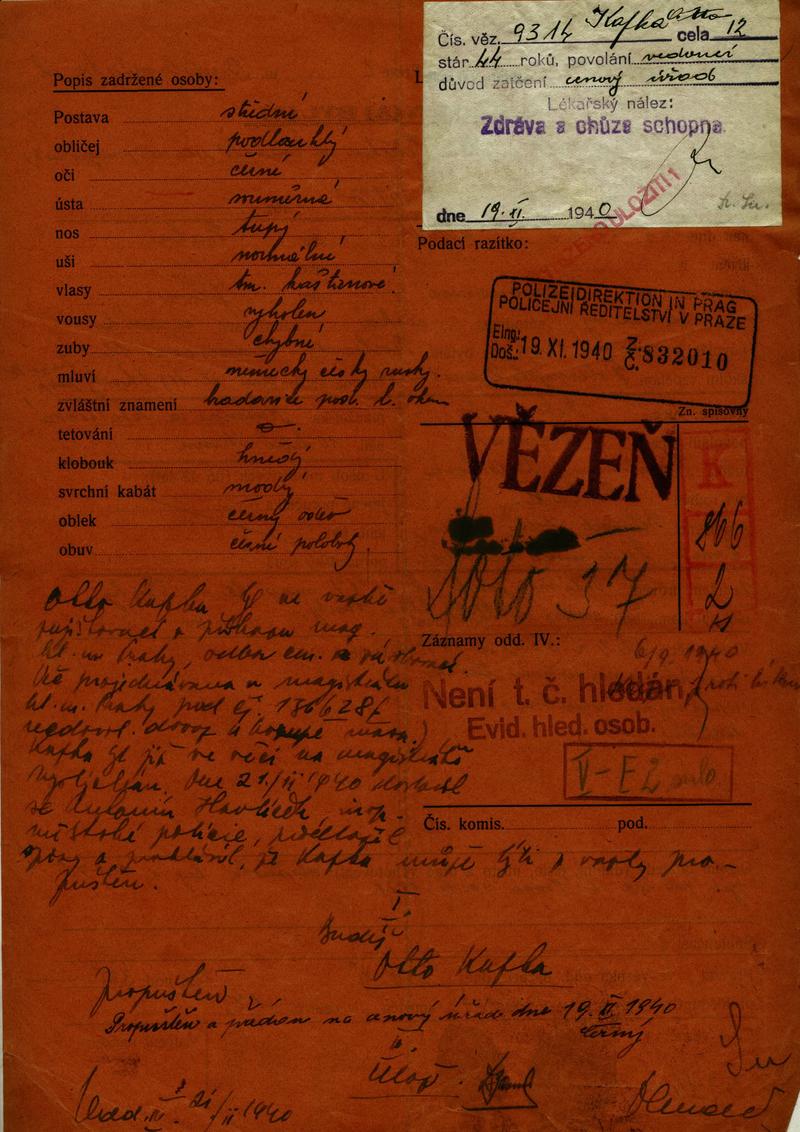 Čís. věz. 9314 Kafka Otto cela 12
stár 44 roků, povolání vedoucí
důvod zatčení cenový úřad
Lékařský nález:
Zdráva a chůze schopna.
dne 19. XI. 1940
Popis zadržené osoby:
Postava střední
obličej podlouhlý
oči černé
ústa souměrná
nos tupý
uši normální
vlasy tm. kaštanové
vousy vyholen
zuby chybné
mluví německy česky rusky.
zvláštní znamení bradavice pod l. okem
tetování
klobouk hnědý
svrchní kabát modrý
oblek černý oděv
obuv černé polobotky.
Podací razítko:
POLIZEIDIREKTION IN PRAG
POLICEJNÍ ŘEDITELSTVÍ V PRAZE
Elng.:
Doš.: 19. XI. 1940 Z. Č. 832010
Zn. spisovny
VĚZEŇ
K
866
2
Záznamy odd. IV.:
6/9. 1940
Není t. č. hledán,
Evid. hled. osob.
V-E2
Čís. komis. pod.
Otto Kafka byl ve vazbě
zajišťovací s příkazu mag.
hl. m. Prahy, odbor cen.
Věc projednávána u magistrátu
hl. m. Prahy pod čj. 186628/
nedovol. dovoz
Kafka byl již ve věci na magistrátu
vyslýchán. Dne 21./II 1940 dostavil
se Antonín Havlíček, insp.
městské policie, předložil
spis a prohlásil, že Kafka může býti z vazby pro-
puštěn.
I.
Budiž
Otto Kafka
propuštěn
Propuštěn a předán na cenový úřad dne 19. XI 1940
Černý
II.
Ulož.
21/II 1940